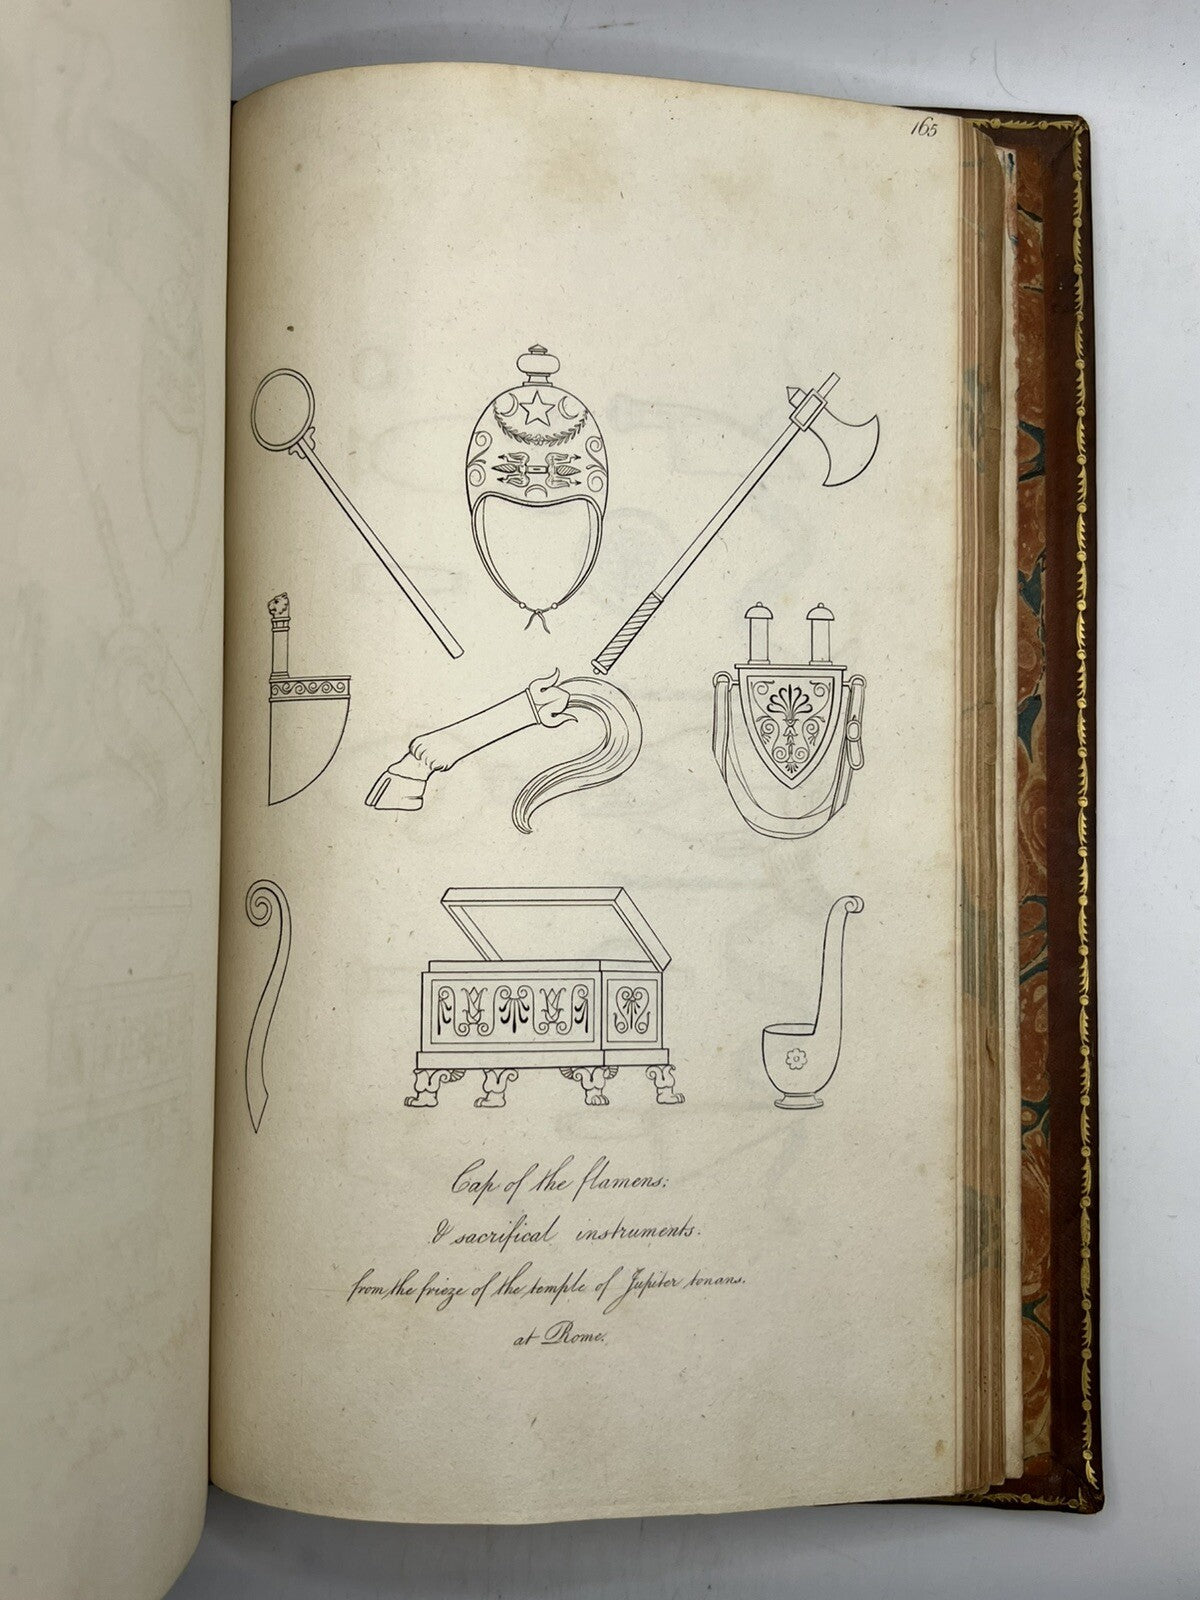 165
Cap of the flamens;
& sacrifical instruments.
from the frieze of the temple of Jupiter tonans.
at Rome.